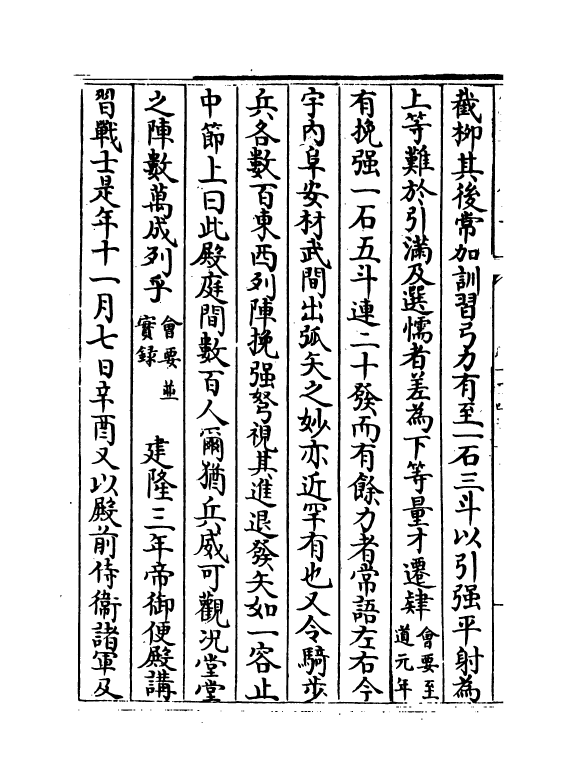 截柳其後常加訓習弓力有至一石三斗以引强平射為
上等難於引滿及選懦者差為下等量才遷肄會要至道元年
有挽强一石五斗連二十發而有餘力者常語左右今
宇内阜安材武間出弧矢之妙亦近罕有也又令騎步
兵各數百東西列陣挽强弩視其進退發矢如一容止
中節上曰此殿庭間數百人爾猶兵威可觀况堂堂
之陣數萬成列乎會要並實録 建隆三年帝御便殿講
習戰士是年十一月七日辛酉又以殿前侍衞諸軍及